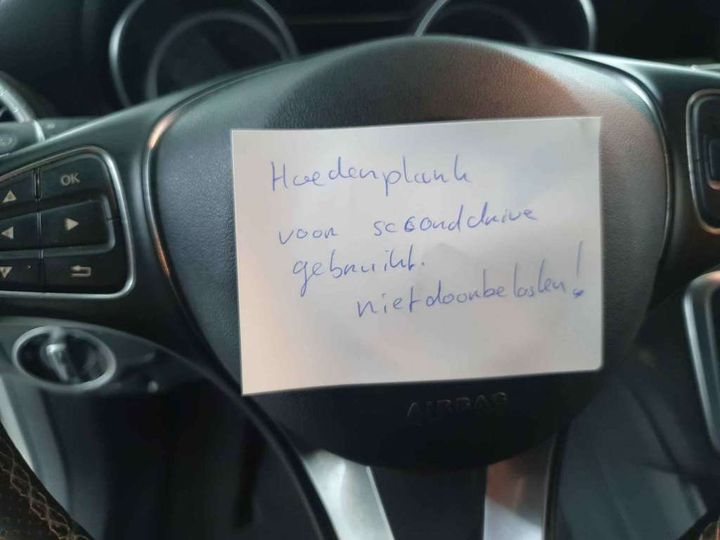 OK
Hoedenplank
voor seconddrive
gebruikt.
niet doorbelasten!
AIRBAG